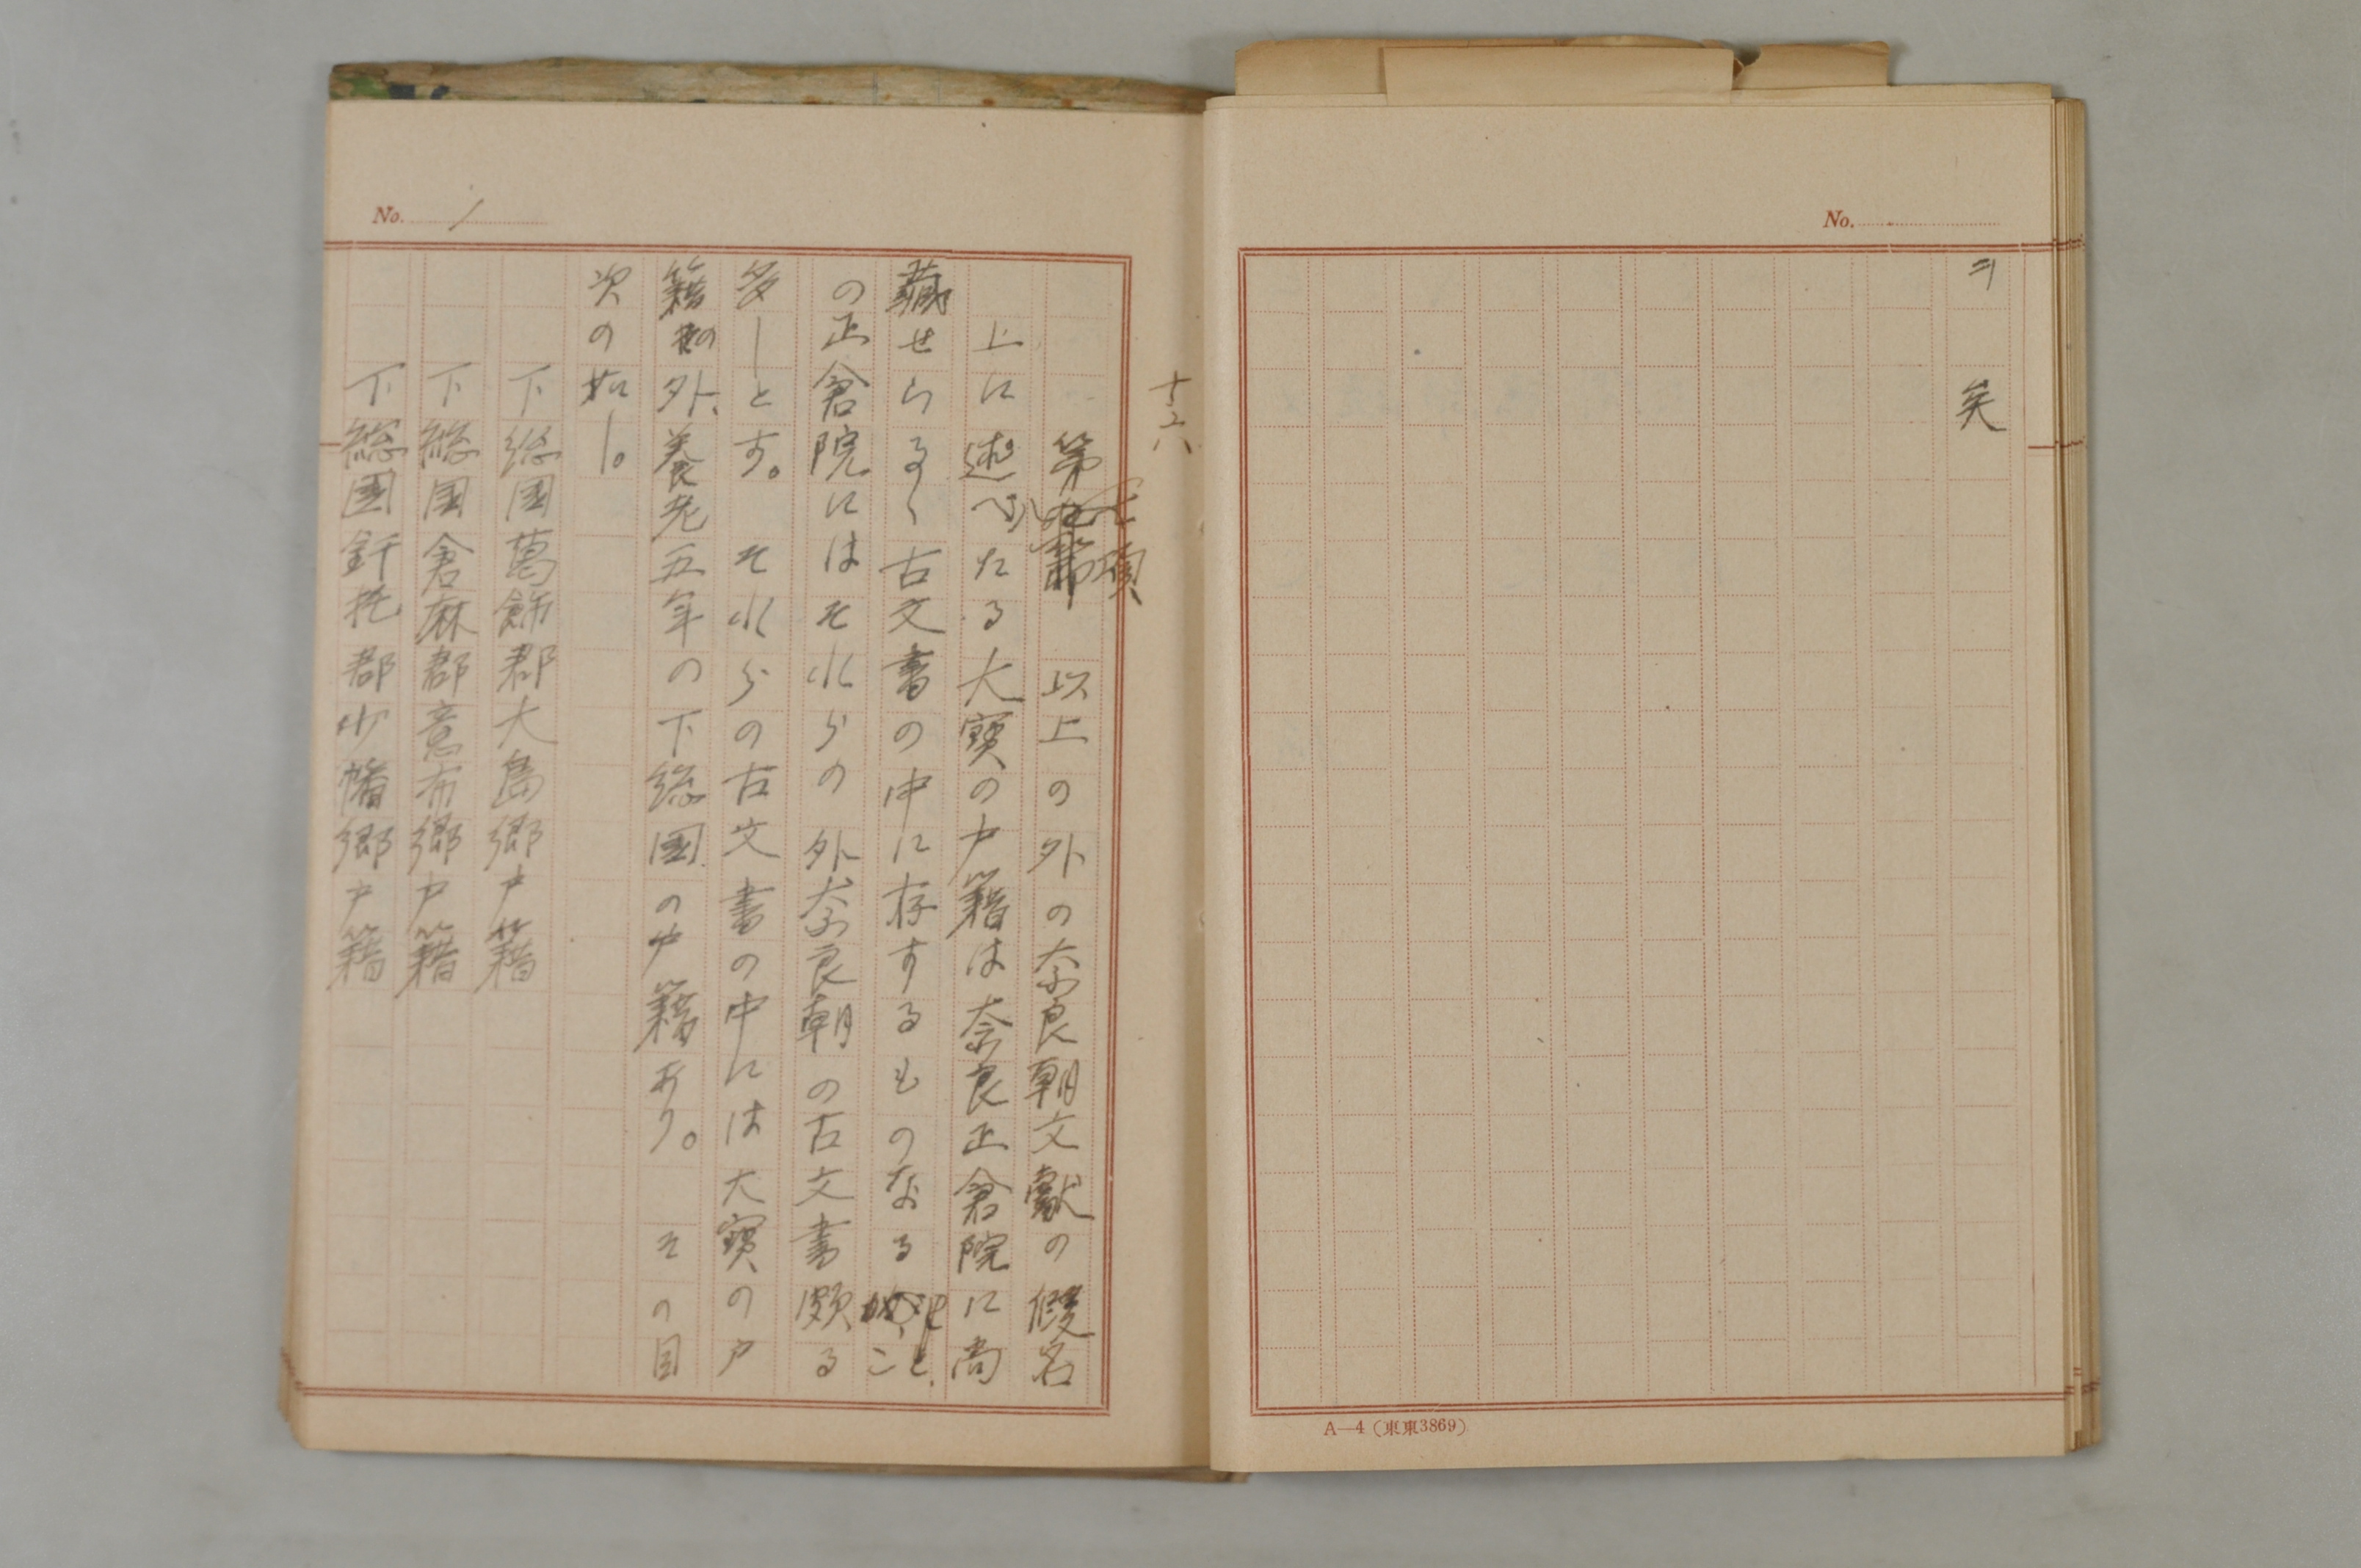 No.
ヰ 矣
A—4(東東3869)
No. 1
十六
第七項 以上の外の奈良朝文獻の假名
上に述べたる大寶の戸籍は奈良正倉院に尚
藏せらるゝ古文書の中に存するものなること、
の正倉院にはそれらの外奈良朝の古文書頗る
多しとす。それらの古文書の中には大寶の戸
籍の外、養老五年の下総国の戸籍あり。その目
次の如し。
下総国葛飾郡大島郷戸籍
下総国倉麻郡意布郷戸籍
下総國釬托郡少幡郷戸籍